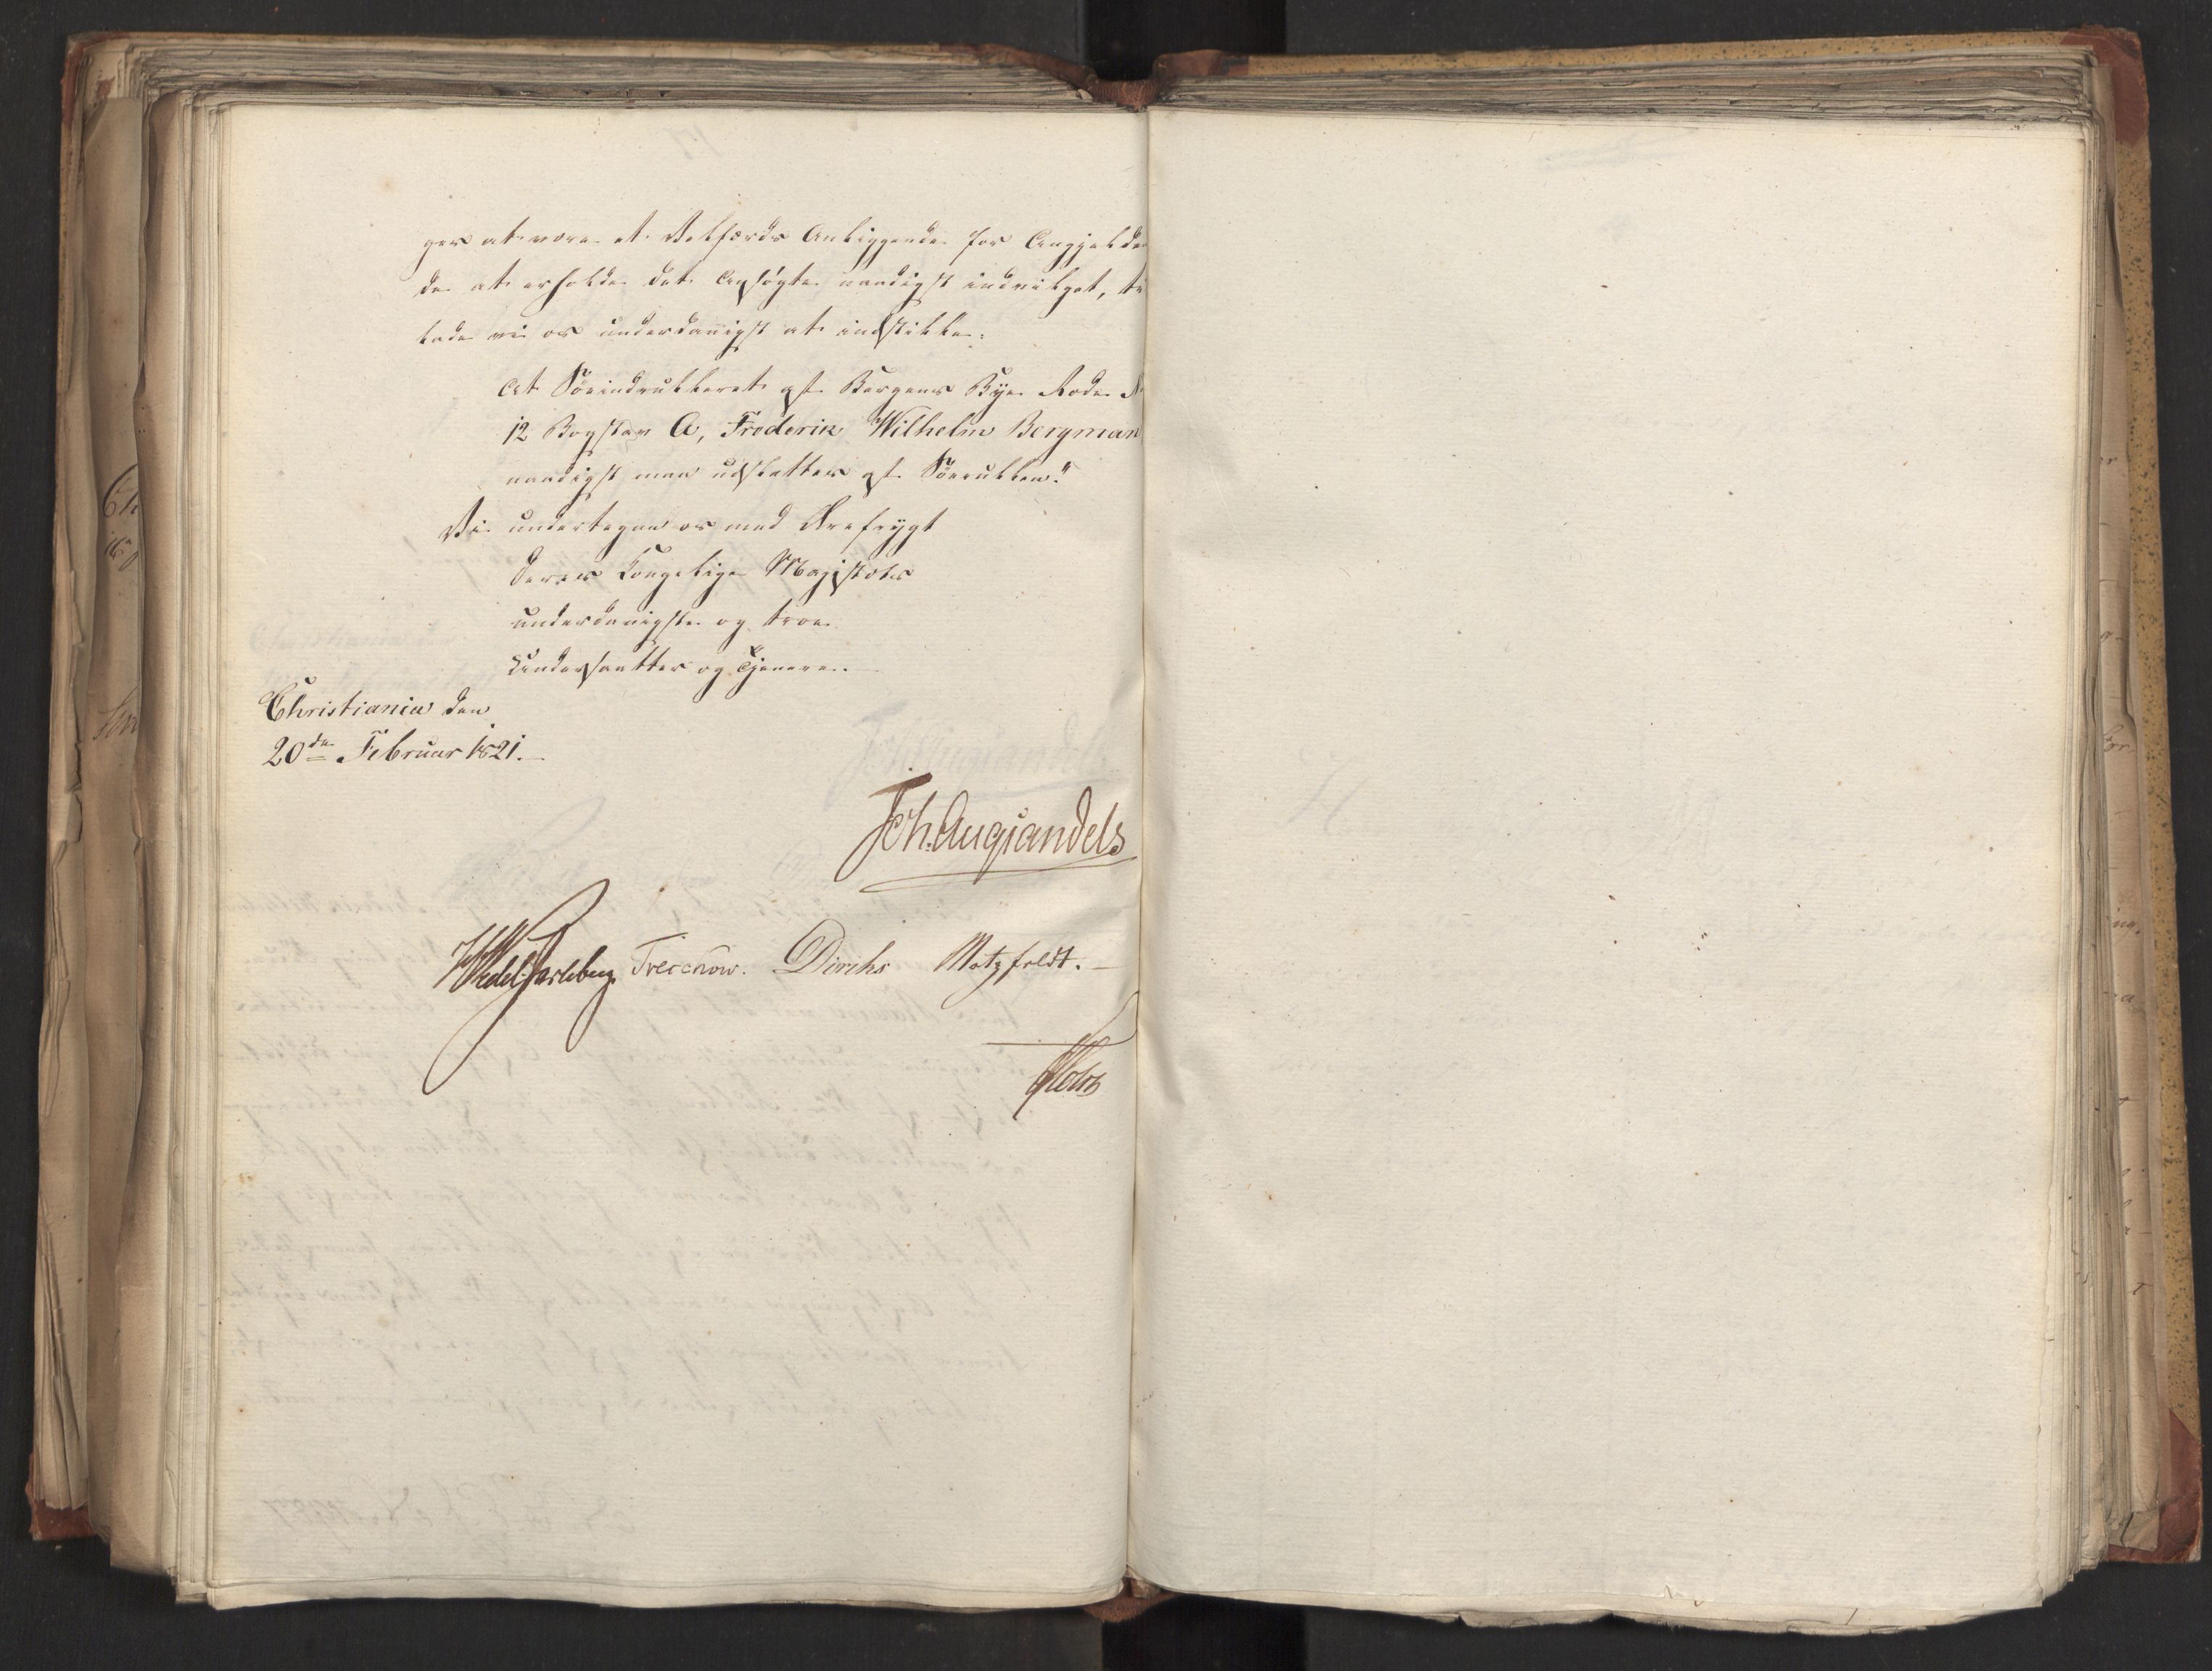 ger at være et Velfærds Anliggende for Angjelden
de at erholde det Ansøgte naadigst indvilget, til
lade vi os underdanigst at indstille:
At Søeindrulleret af Bergens Bye Rode N
12 Bogstav A, Frederik Wilhelm Bergman
naadigst maa udslettes af Søerullen."
Vi undertegne os med Ærefrygt
Deres Kongelige Majestæts
underdanigste og troe
Undersaatter og Tjenere.
Christiania den
20de Februar 1821.
Joh. Aug. Sandels
HWedel Jarlsberg. Treschow. Diriks Motzfeldt.
Holst